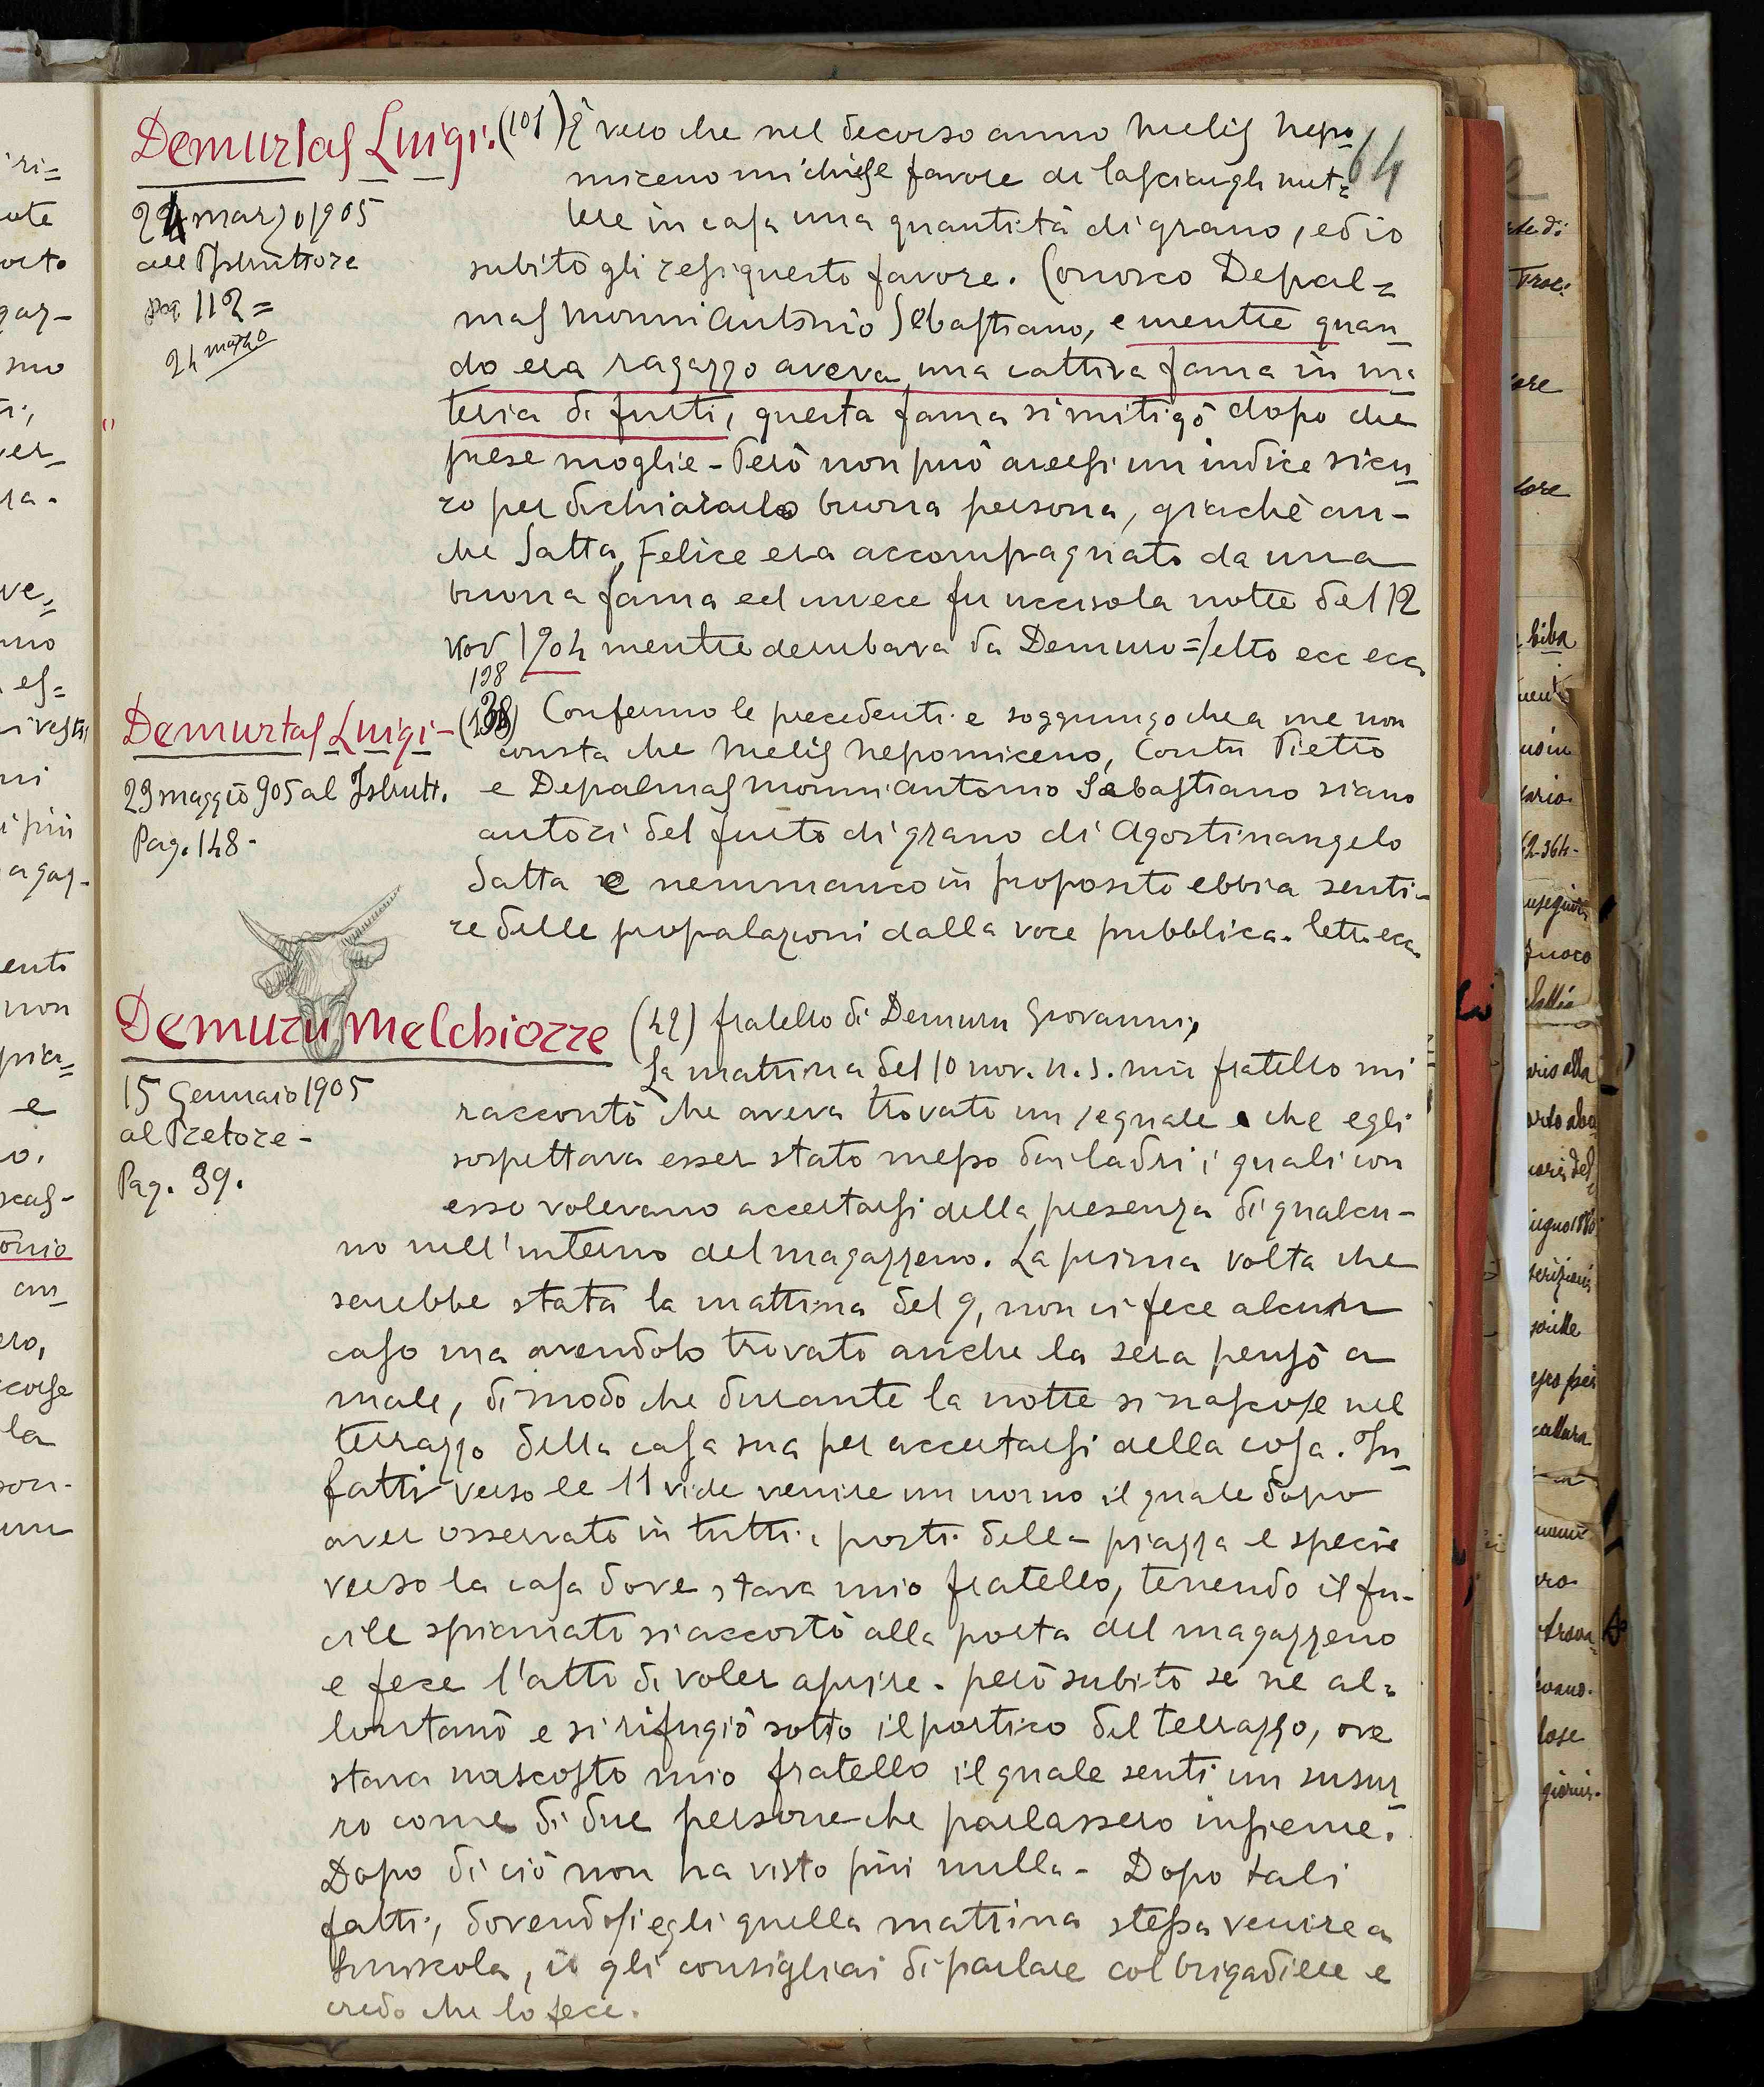 64
Demurtas Luigi. (101) È vero che nel decorso anno Melis Nepo=
miceno mi chiese favore di lasciargli met=
tere in casa una quantità di grano, ed io
subito gli resi questo favore. Conosco Depal=
mas Monni Antonio Sebastiano, e mentre quan=
do era ragazzo aveva una cattiva fama in ma
teria di furti, questa fama si mitigò dopo che
prese moglie - Però non può aversi un indice sicu=
ro per dichiararlo buona persona, giachè an-
che Satta Felice era accompagnato da una
buona fama ed invece fu ucciso la notte del 12
nov 1904 mentre derubava da Demuru = letto ecc ecc
24 marzo 1905
all'Istruttore
pag 112 =
24 marzo
Demurtas Luigi - (138) Confermo le precedenti e soggiungo che a me non
138
consta che Melis Nepomiceno, Contu Pietro
e Depalmas Monni Antonio Sebastiano siano
autori del furto di grano di Agostinangelo
Satta e nemmanco in proposito ebbi a senti-
re delle propalazioni dalla voce pubblica. lett. ecc
29 maggio 905 al Istrutt.
Pag. 148 -
Demuru Melchiorre (42) fratello di Demuru Giovanni,
La mattina del 10 nov. u. s. mio fratello mi
raccontò che aveva trovato un segnale che egli
sospettava esser stato messo dai ladri i quali con
esso volevano accertarsi della presenza di qualcu-
no nell'interno del magazzeno. La prima volta che
sarebbe stata la mattina del 9, non ci fece alcun
caso ma avendolo trovato anche la sera pensò a
male, di modo che durante la notte si nascose nel
terrazzo della casa sua per accertarsi della cosa. In=
fatti verso le 11 vide venire un uomo il quale dopo
aver osservato in tutti i posti della piazza e specie
verso la casa dove stava mio fratello, tenendo il fu-
cile spianato si accostò alla porta del magazzeno
e fece l'atto di voler aprire - però subito se ne al=
lontanò e si rifugiò sotto il portico del terrazzo, ove
stava nascosto mio fratello il quale sentì un susur=
ro come di due persone che parlassero insieme.
Dopo di ciò non ha visto più nulla - Dopo tali
fatti, dovendosi egli quella mattina stessa venire a
Siniscola, io gli consigliai di parlare col brigadiere e
credo che lo fece.
15 Gennaio 1905
al Pretore -
Pag. 39.